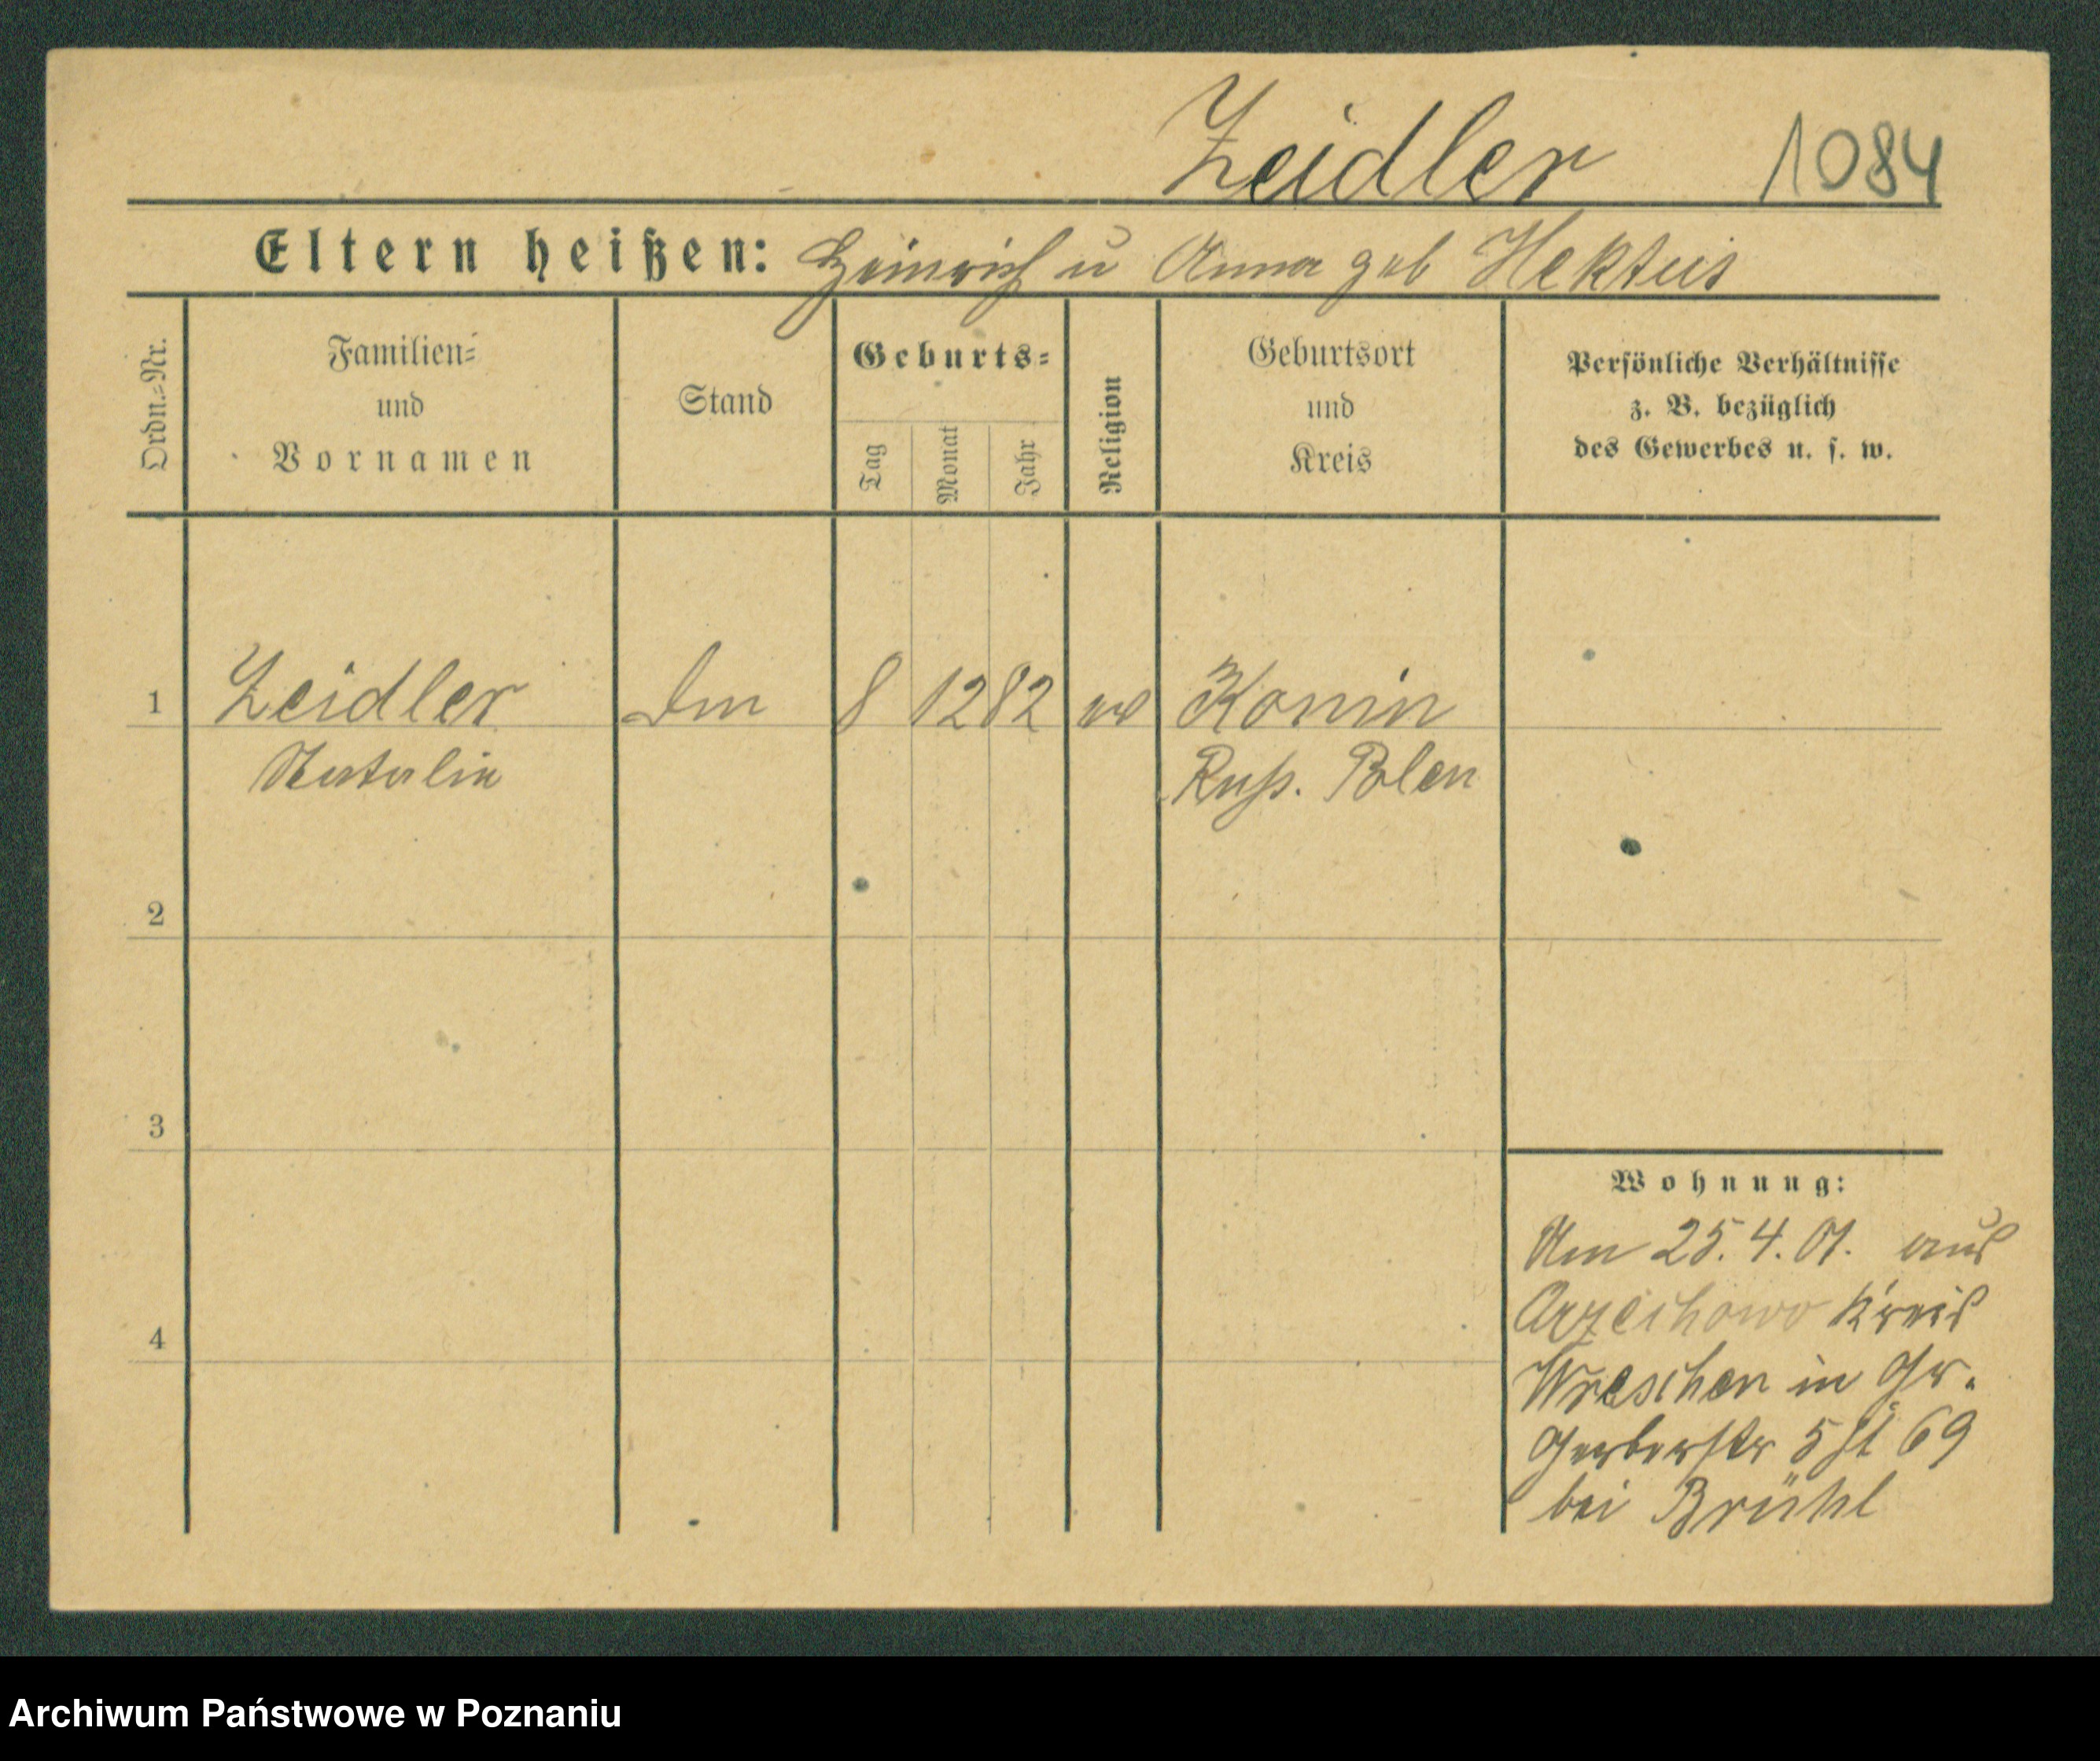 Zeidler 1084
Eltern heißen: Heinrich u Anna geb Hektus
Ordn.=Nr.
Familien=
und
Vornamen
Stand
Geburts=
Tag
Monat
Jahr
Religion
Geburtsort
und
Kreis
Persönliche Verhältnisse
z. B. bezüglich
des Gewerbes u. s. w.
1 Zeidler 8 12 82 ev Konin
Natalie Russ. Polen
2
3
4
Wohnung:
Am 25.4.01. aus
Kreis
Wreschen in Gr.
Gerberstr 5 St 69
bei Brühl
Archiwum Państwowe w Poznaniu